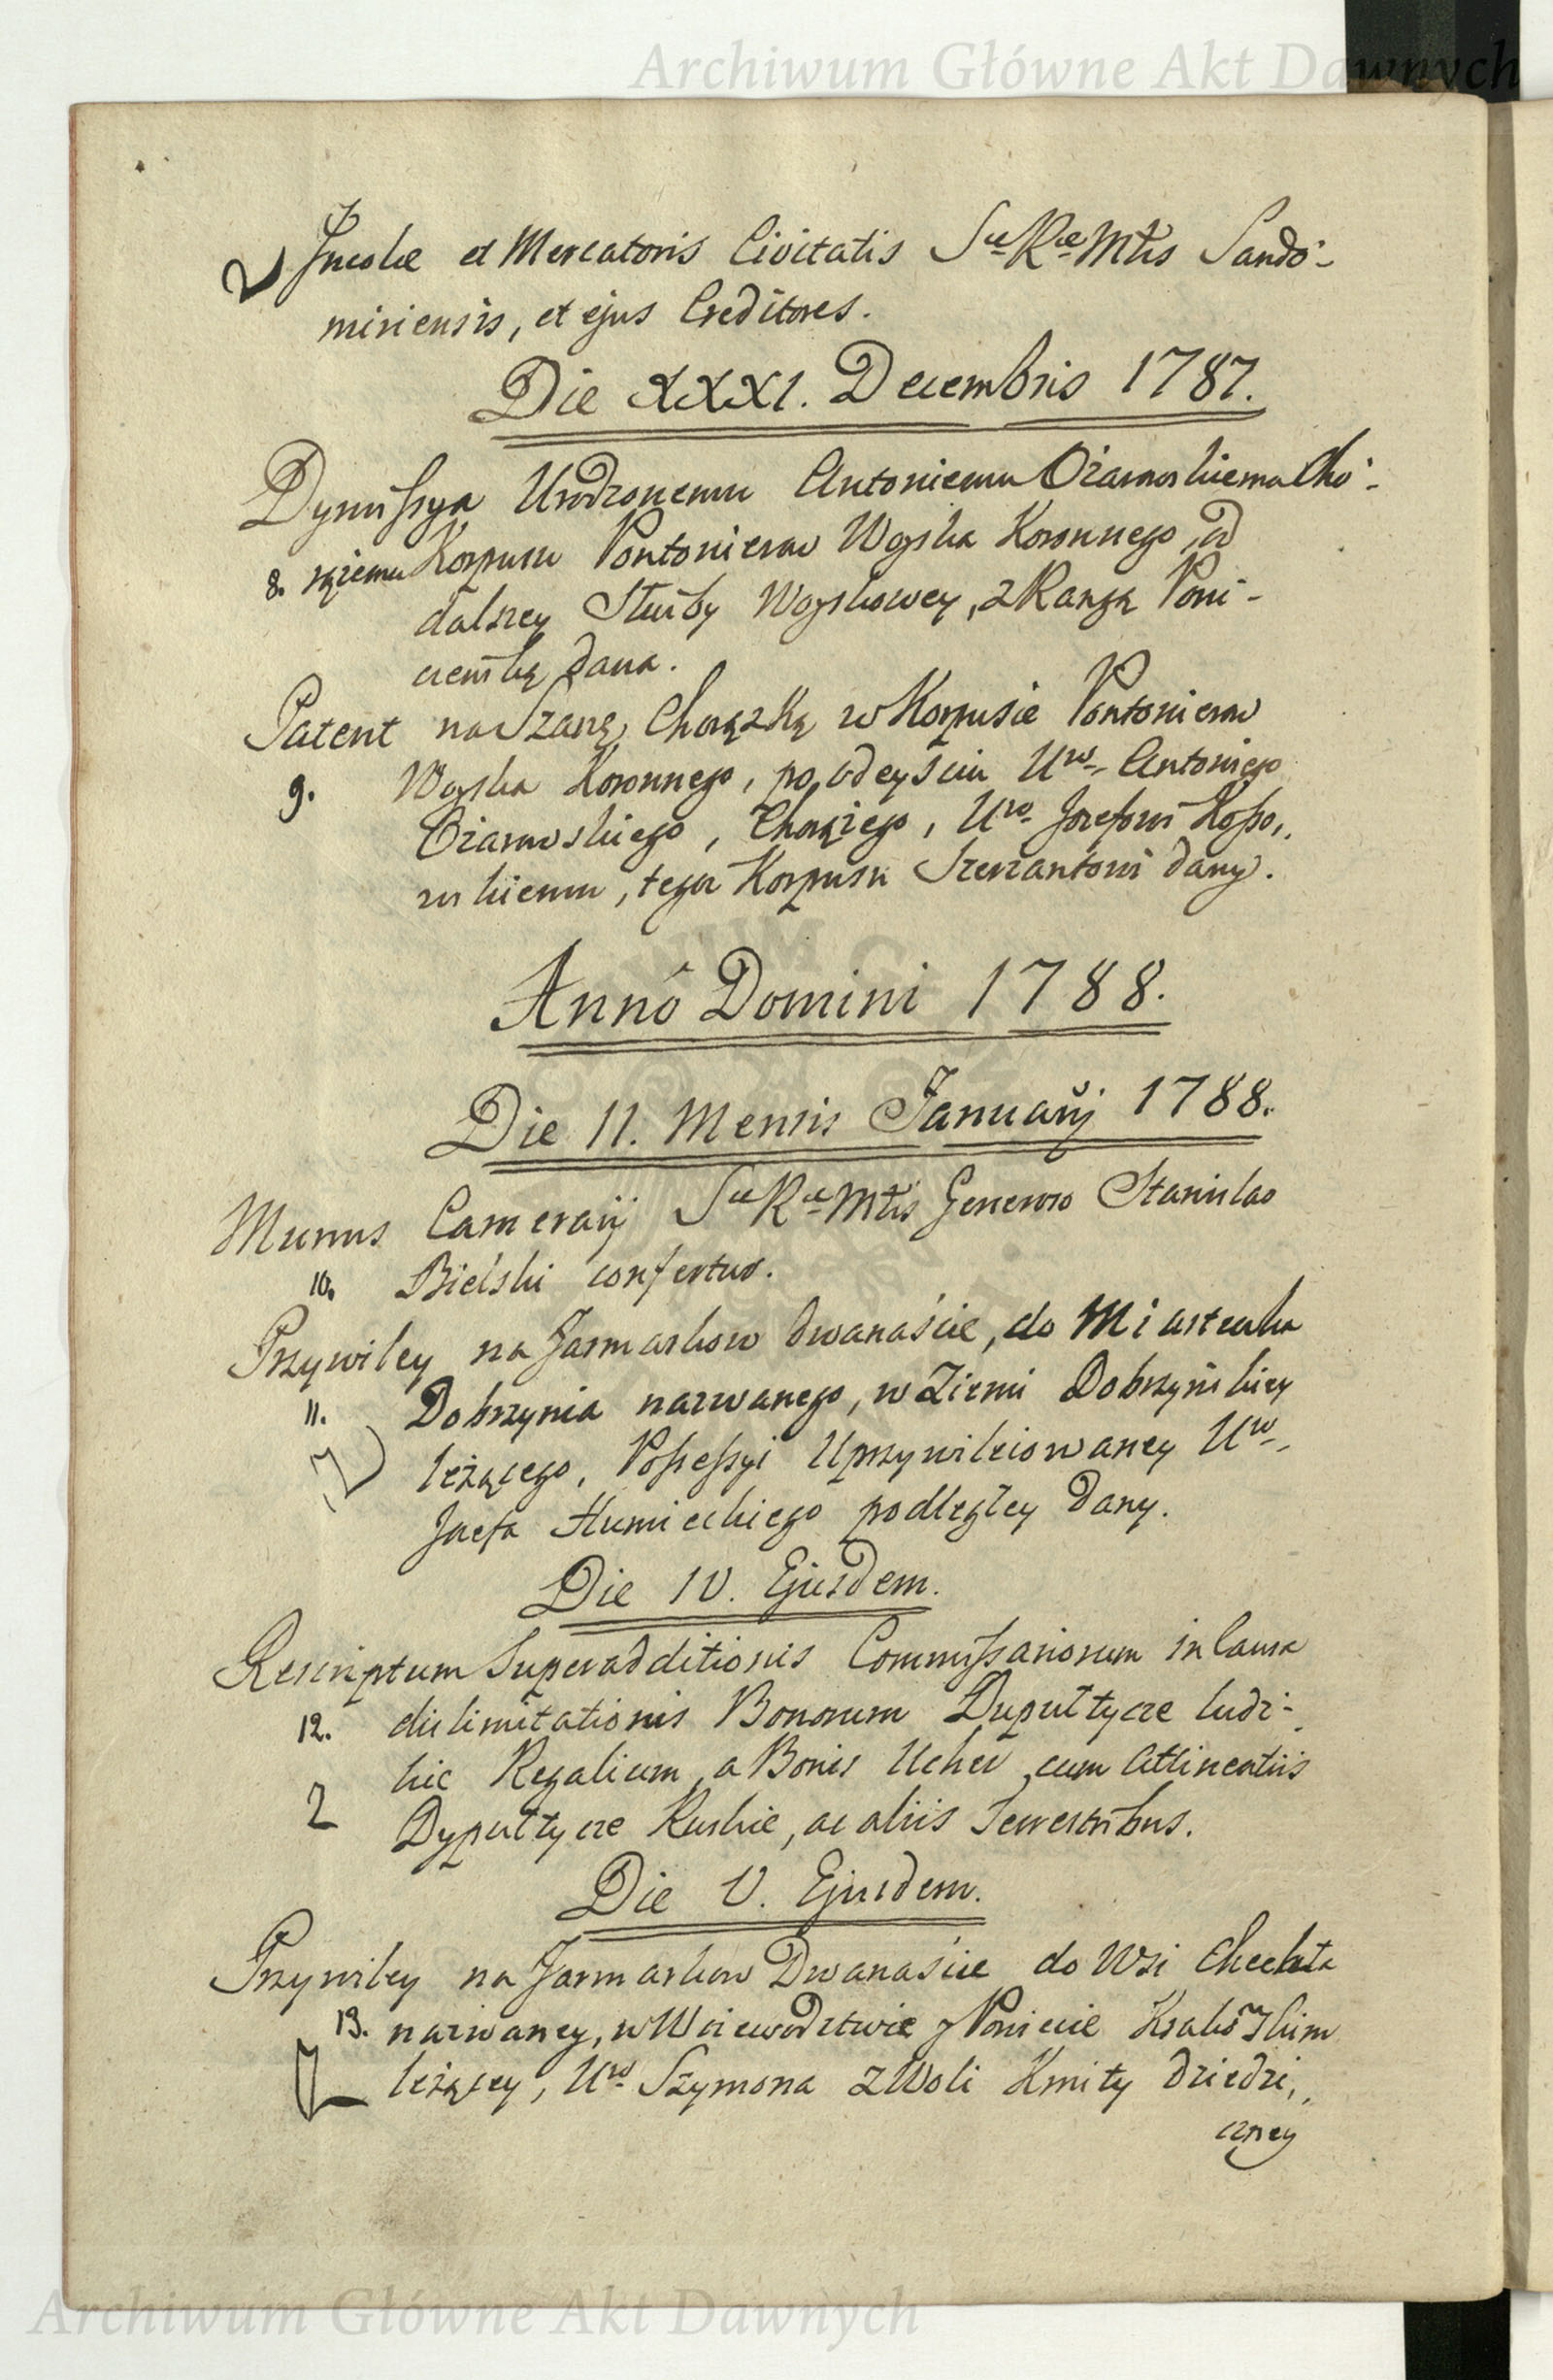 Archiwum Główne Akt Dawnych
Incolæ et Mercatoris Civitatis Sæ Ræ Mtis Sando-
miriensis, et ejus Creditores.
Die XXXI. Decembris 1787.
Dymissya Urodzonemu Antoniemu Ożarowskiemu Cho-
8. rążemu Korpusu Pontonierow Woyska Koronnego, od
dalszey Służby Woyskowey, z Rangą Poru-
cznika dana.
Patent na Szarżę Chorążką w Korpusie Pontonierow
9. Woyska Koronnego, po odeyściu Uro Antoniego
Ożarowskiego, Chorążego, Uro Jozefowi Kosso,,
wskiemu, tegoż Korpusu Szerżantowi dany.
Annô Domini 1788.
Die II. Mensis Januarij 1788.
Munus Camerarij Sæ Ræ Mtis Generoso Stanislao
10. Bielski confertur.
Przywiley na Jarmarkow dwanaście, do Miasteczka
11. Dobrzynia nazwanego, w Ziemi Dobrzyńskiey
leżącego, Possessyi Uprzywileiowaney Uro
Jozefa Humieckiego podległey dany.
Die IV. Ejusdem.
Rescriptum Superadditionis Commissariorum in Causa
12. dislimitationis Bonorum Duputtycze Ludz-
kie Regalium, a Bonis Ucher, cum Attinentiis
2 Dyputtycze Ruskie, ac aliis Serrestribus.
Die V. Ejusdem.
Przywiley na Jarmarkow Dwanaście do Wsi Chechła
13. nazwaney, w Woiewodztwie y Powiecie Krakowskim
leżącey, Uro Szymona z Woli Kmity dziedzi,,
czney
Archiwum Główne Akt Dawnych